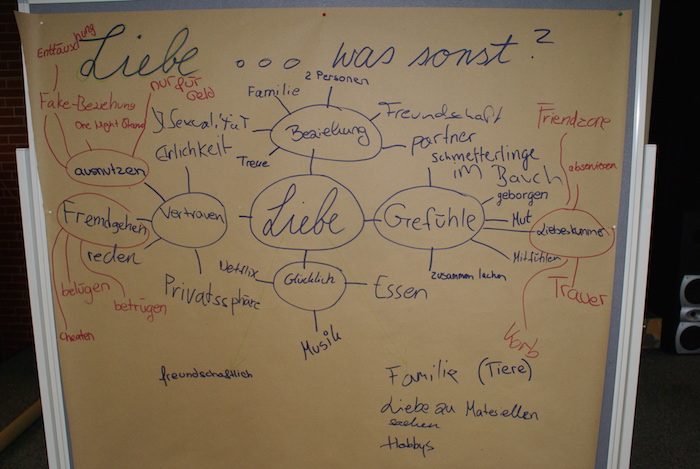 Liebe ... was sonst?
Enttäuschung
Fake-Beziehung
nur für
Geld
One Night Stand
ausnutzen
Fremdgehen
belügen
betrügen
cheaten
Familie
2 Personen
Sexualität
Treue
Beziehung
Freundschaft
partner
Ehrlichkeit
Vertrauen
reden
Privatssphäre
Liebe
Gefühle
schmetterlinge
im Bauch
geborgen
Mut
Mitfühlen
zusammen lachen
Netflix
Glücklich
Essen
Musik
Friendzone
abserviesen
Liebeskummer
Trauer
Korb
freundschaftlich
Familie (Tiere)
Liebe zu Materiellen
Hobbys